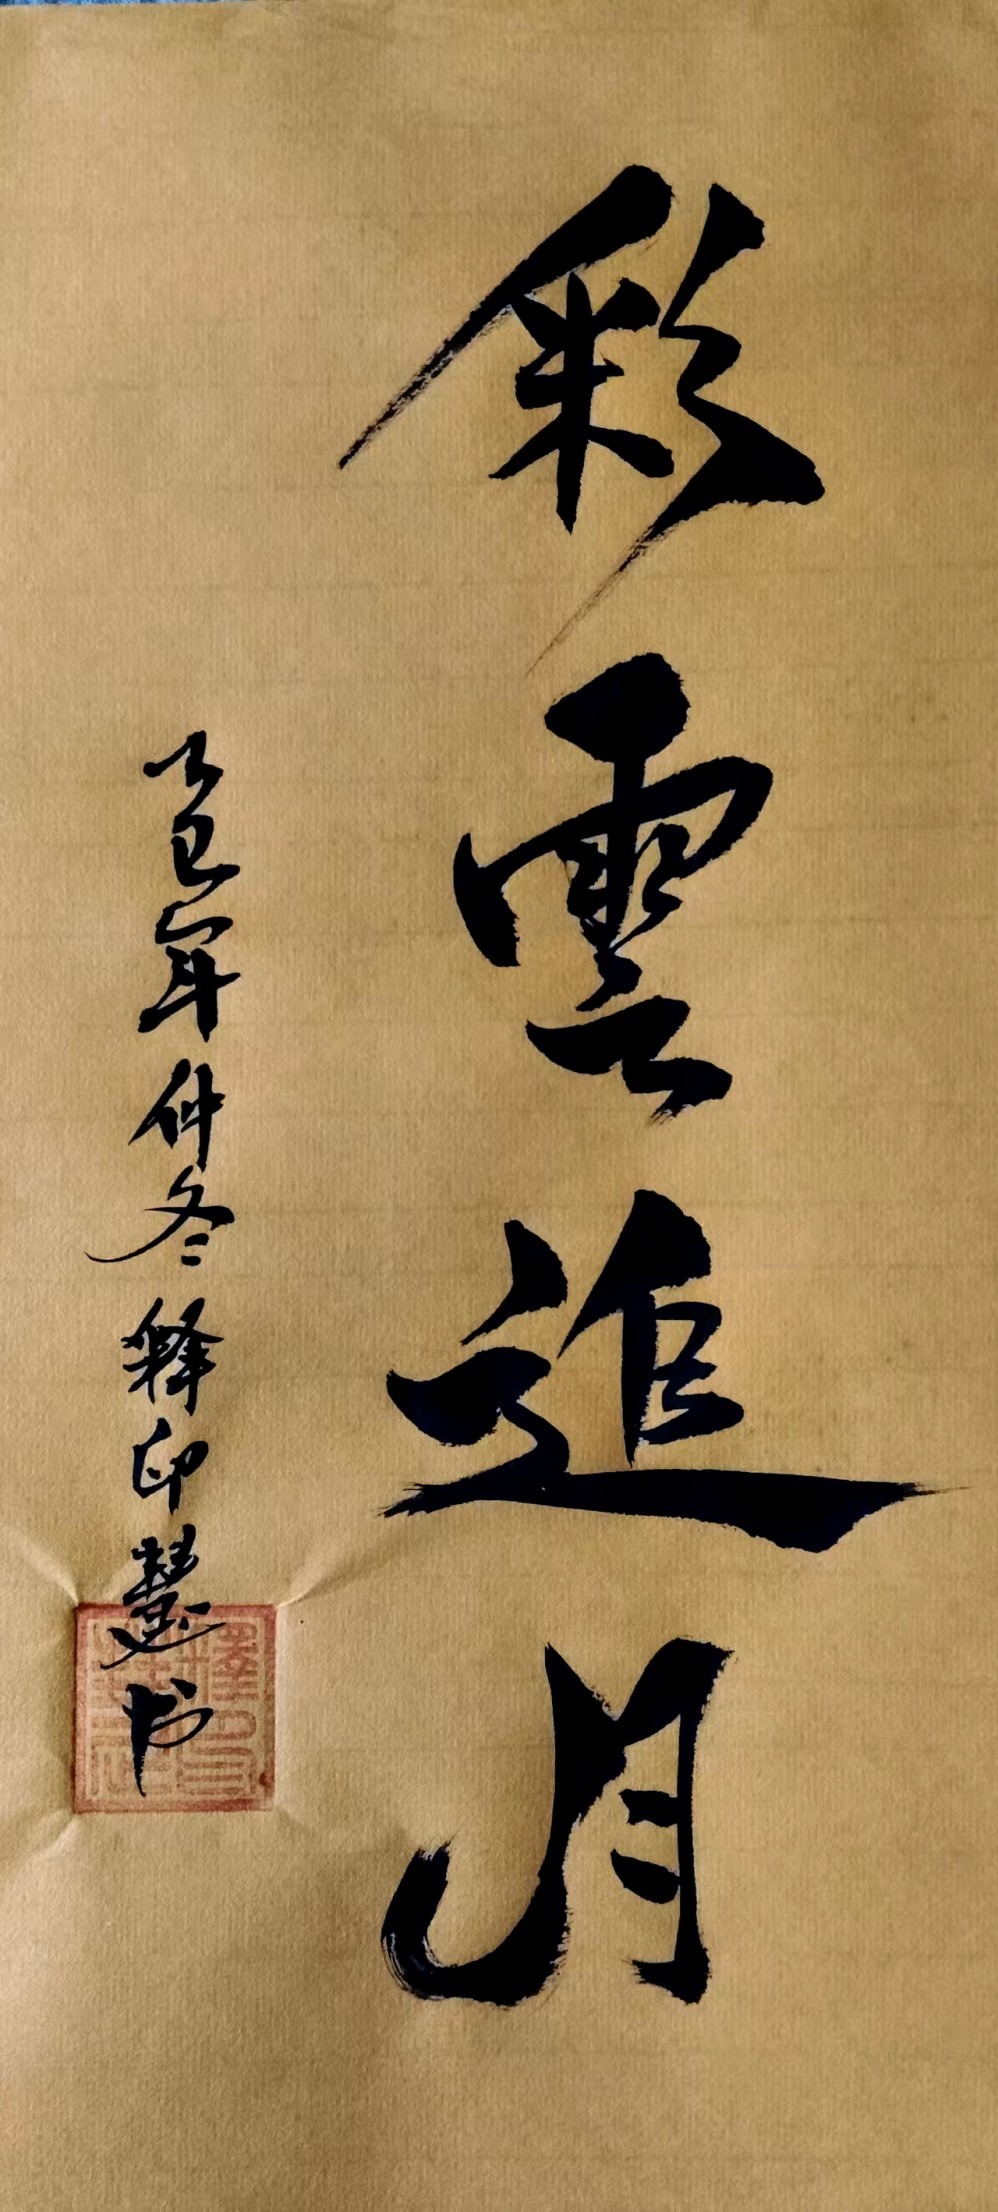 彩雲追月
乙巳年仲冬释印慧书